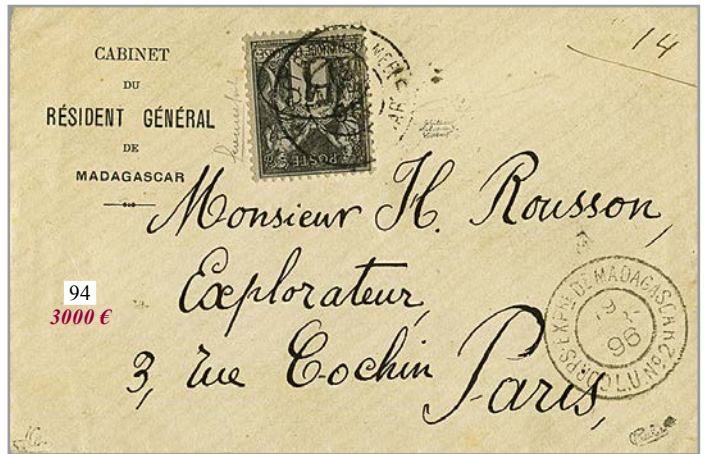 CABINET
DU
RÉSIDENT GÉNÉRAL
DE
MADAGASCAR
14
POSTE
Monsieur H. Rousson,
Explorateur,
3, rue Cochin
Paris,
CORPS-EXPRE DE MADAGASCAR
96
94
3000 €